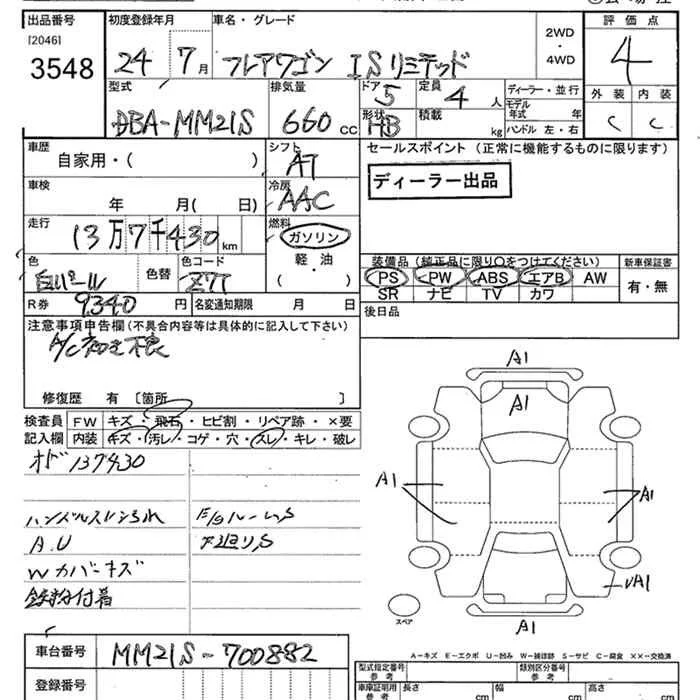 出品番号 初度登録年月 車名・グレード 2WD・4WD 評価点
[2046]
3548 24 7月 フレアワゴン ISリミテッド 4
型式 排気量 ドア 5 定員 4人 ディーラー・並行 外装 内装
DBA-MM21S 660cc 形状 HB 積載 kg モデル年式 年 C C
ハンドル 左・右
車歴 シフト セールスポイント (正常に機能するものに限ります)
自家用・( ) AT
ディーラー出品
車検 冷房
年 月( 日) AAC
走行 燃料
13万7千430km ガソリン
軽・油
( )
色 色替 色コード 装備品 (純正品に限り○をつけてください) 新車保証書
白パール Z7T PS PW ABS エアB AW 有・無
SR ナビ TV カワ
R券 9340円 名変通知期限 月 日 後日品
注意事項申告欄(不具合内容等は具体的に記入して下さい)
A/C 不良
修復歴 有 〔箇所 〕
検査員 FW キズ・飛石・ヒビ割・リペア跡・×要
記入欄 内装 キズ・汚レ・コゲ・穴・スレ・キレ・破レ
オド137430
ハンドルスレ E/gルームS
A.U 下廻りS
Wカバーキズ
鉄粉付着
A1
A1
A1
A1
A1
A1
スペア
A-キズ E-エクボ U-凹み W-補修跡 S-サビ C-腐食 XX-交換済
車台番号 MM21S-700882
型式指定番号 参考 類別区分番号 参考
登録番号 車庫証明用 参考 長さ cm 幅 cm 高さ cm